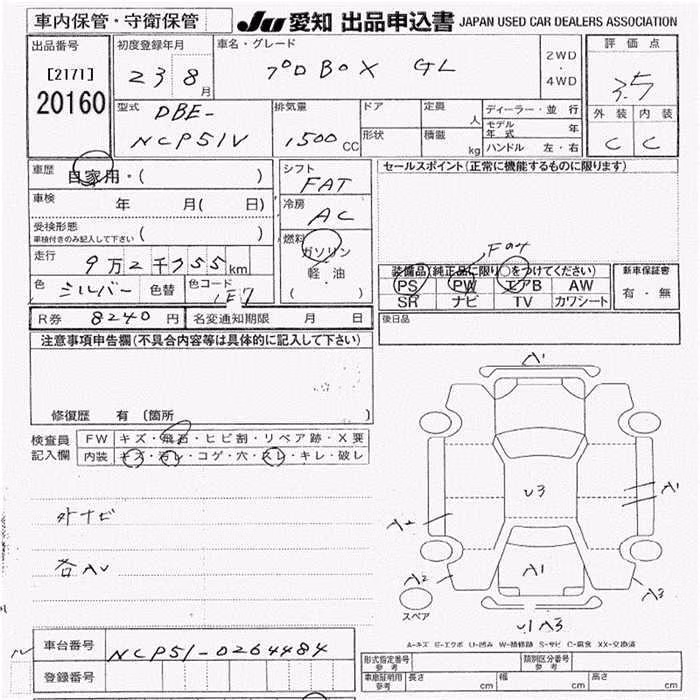 車内保管・守衛保管
JU 愛知 出品申込書 JAPAN USED CAR DEALERS ASSOCIATION
出品番号
[2171]
20160
初度登録年月
23 8 月
車名・グレード
プロBOX GL
2WD
・
4WD
評価点
3.5
外装 内装
C C
型式
DBE-
NCP51V
排気量
1,500 CC
ドア
形状
定員 人
積載 kg
ディーラー・並行
モデル年式 年
ハンドル 左・右
車歴
自家用・( )
車検
年 月( 日)
受検形態
車検付きのみ記入して下さい ( )
走行
9万2千755km
色 シルバー 色替 色コード 1E7
シフト
FAT
冷房
AC
燃料
ガソリン
軽油
( ・ )
セールスポイント(正常に機能するものに限ります)
装備品(純正品に限り○をつけてください)
PS PW エアB AW
SR ナビ TV カワシート
新車保証書
有・無
R券 8240 円 名変通知期限 月 日
後日品
注意事項申告欄(不具合内容等は具体的に記入して下さい)
修復歴 有 〔箇所 〕
検査員
記入欄
FW キズ・飛石・ヒビ割・リペア跡・X要
内装 キズ・汚レ・コゲ・穴・スレ・キレ・破レ
外ナビ
社AV
A1
U3
A1
A2
A2
A1
A3
U1 A3
スペア
A-キズ E-エクボ U-凹み W-補修跡 S-サビ C-腐食 XX-交換済
車台番号 NCP51-0264484
登録番号
形式指定番号 参考
類別区分番号 参考
車庫証明用 参考 長さ cm 幅 cm 高さ cm